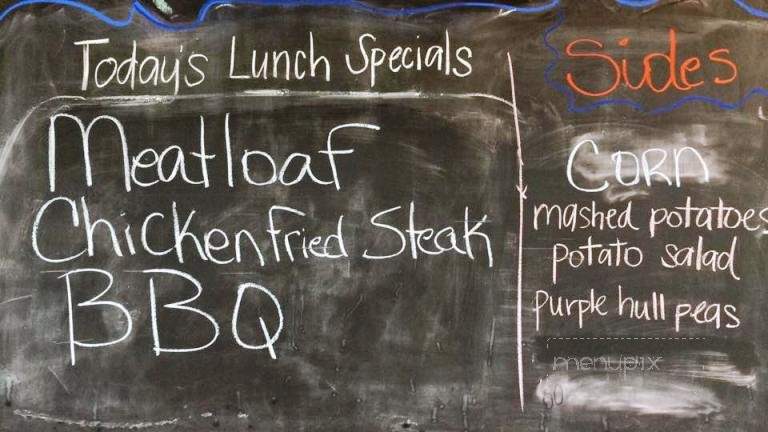 Today's Lunch Specials
Meatloaf
Chicken fried Steak
BBQ
Sides
CORN
mashed potatoes
potato salad
purple hull peas
menupix